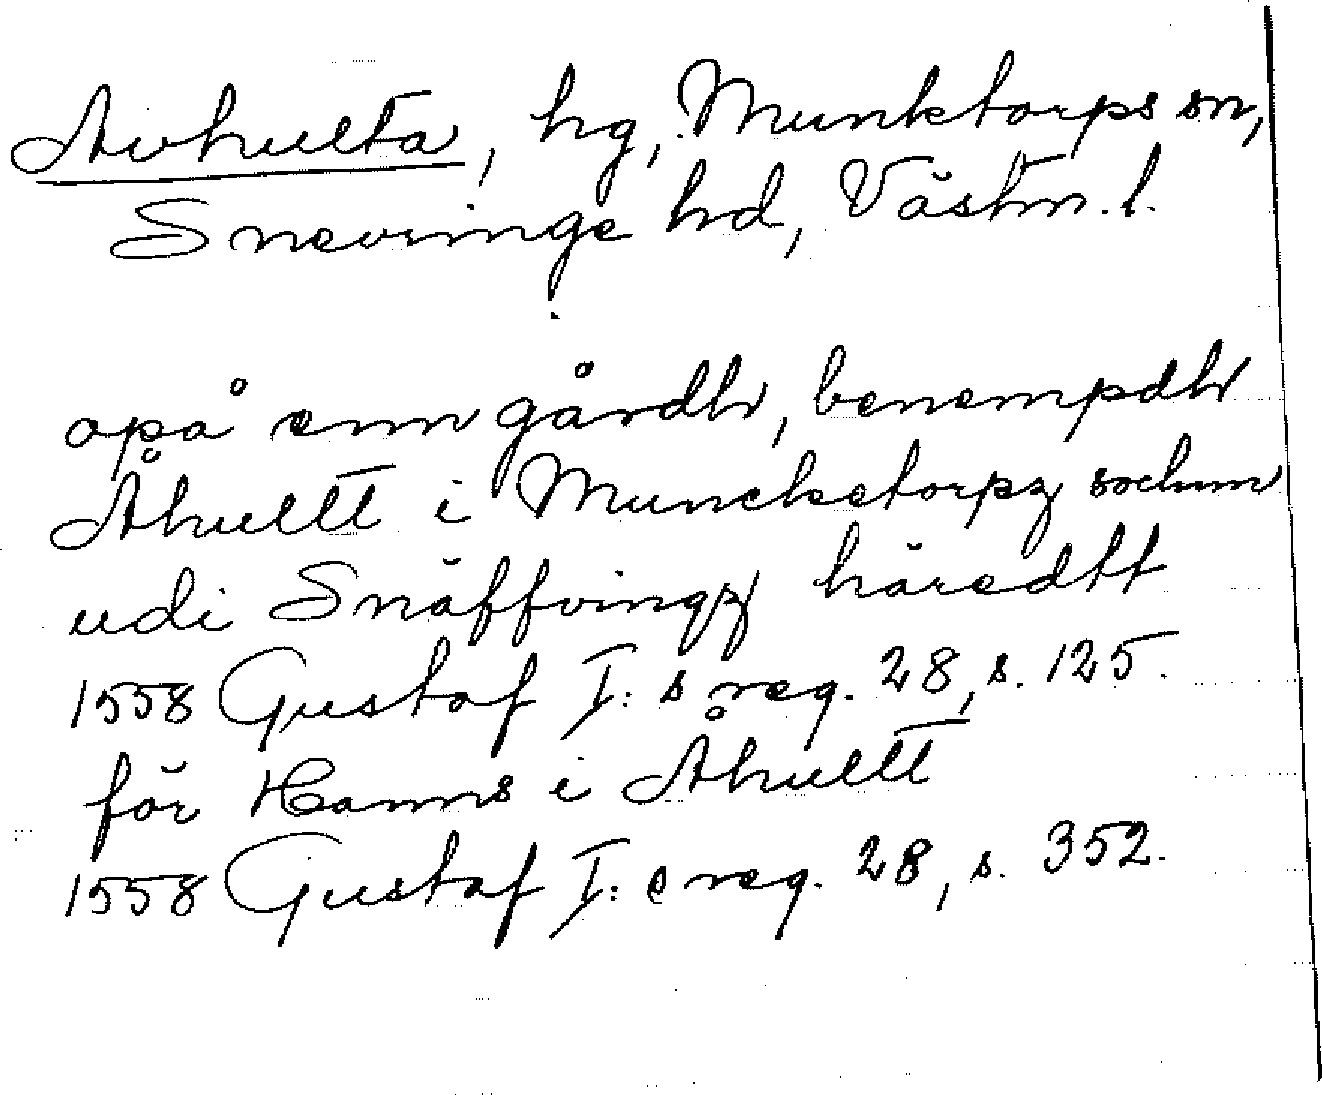 Avhulta, hg, Munktorps sn,
Snevringe hd, Västm. l.
opå enn gårdh, benempdh
Åhultt i Munchetorpz sochnn
udi Snäffvingz häredtt
1558 Gustaf I:s reg. 28, s. 125.
för Hanns i Åhultt
1558 Gustaf I:s reg. 28, s. 352.